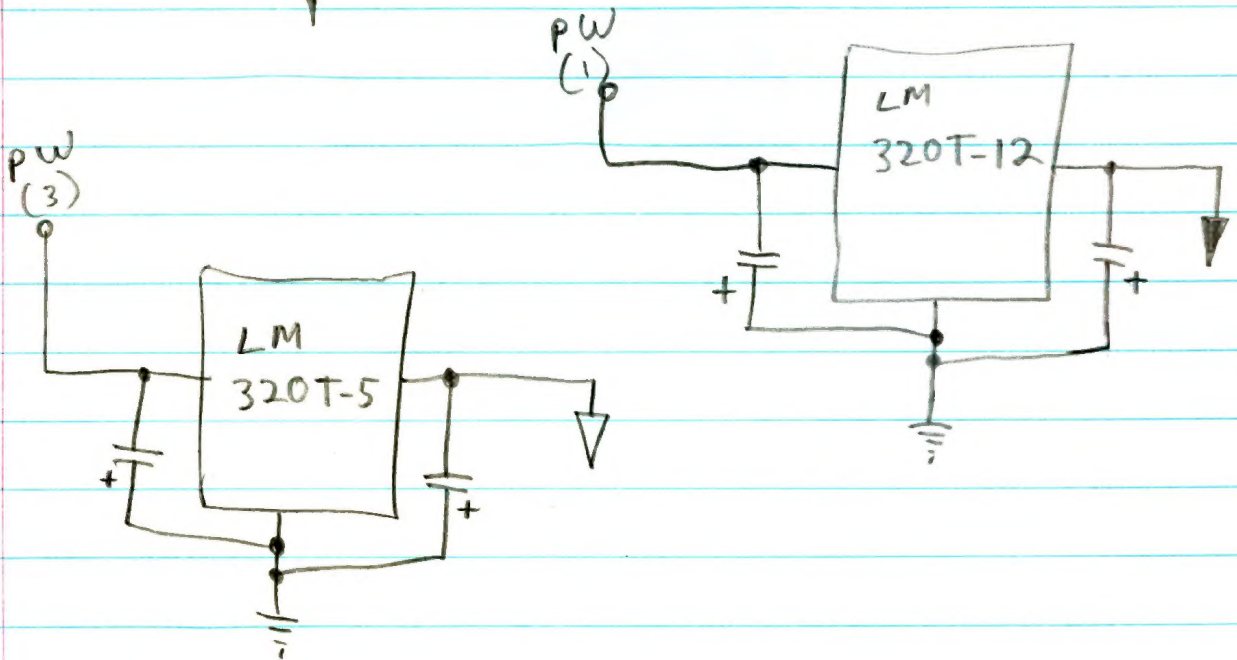 PW
(1)
LM
320T-12
+
+
PW
(3)
LM
320T-5
+
+